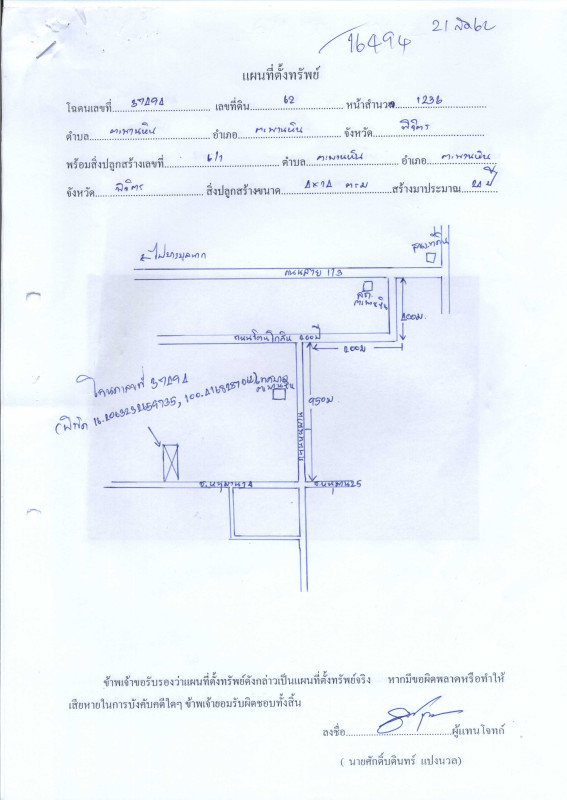 21 สค 62
16494
แผนที่ตั้งทรัพย์
โฉนดเลขที่ 37494 เลขที่ดิน 62 หน้าสำรวจ 1236
ตำบล ตะพานหิน อำเภอ ตะพานหิน จังหวัด พิจิตร
พร้อมสิ่งปลูกสร้างเลขที่ 6/1 ตำบล ตะพานหิน อำเภอ ตะพานหิน
จังหวัด พิจิตร สิ่งปลูกสร้างขนาด ตรม สร้างมาประมาณ ปี
← ไปบางมูลนาก
สนง.ที่ดิน
ถนนสาย 113
สภ. ตะพานหิน
400ม.
ถนนโกสินทร์ 200 ปี
200ม.
โฉนดเลขที่ 37494
เทศบาล ตะพานหิน
950ม
ถนน
ซ.หนุมาน25
ข้าพเจ้าขอรับรองว่าแผนที่ตั้งทรัพย์ดังกล่าวเป็นแผนที่ตั้งทรัพย์จริง หากมีขอผิดพลาดหรือทำให้
เสียหายในการบังคับคดีใดๆ ข้าพเจ้ายอมรับผิดชอบทั้งสิ้น
ลงชื่อ ผู้แทนโจทก์
( นายศักดิ์บดินทร์ แปงนวล)